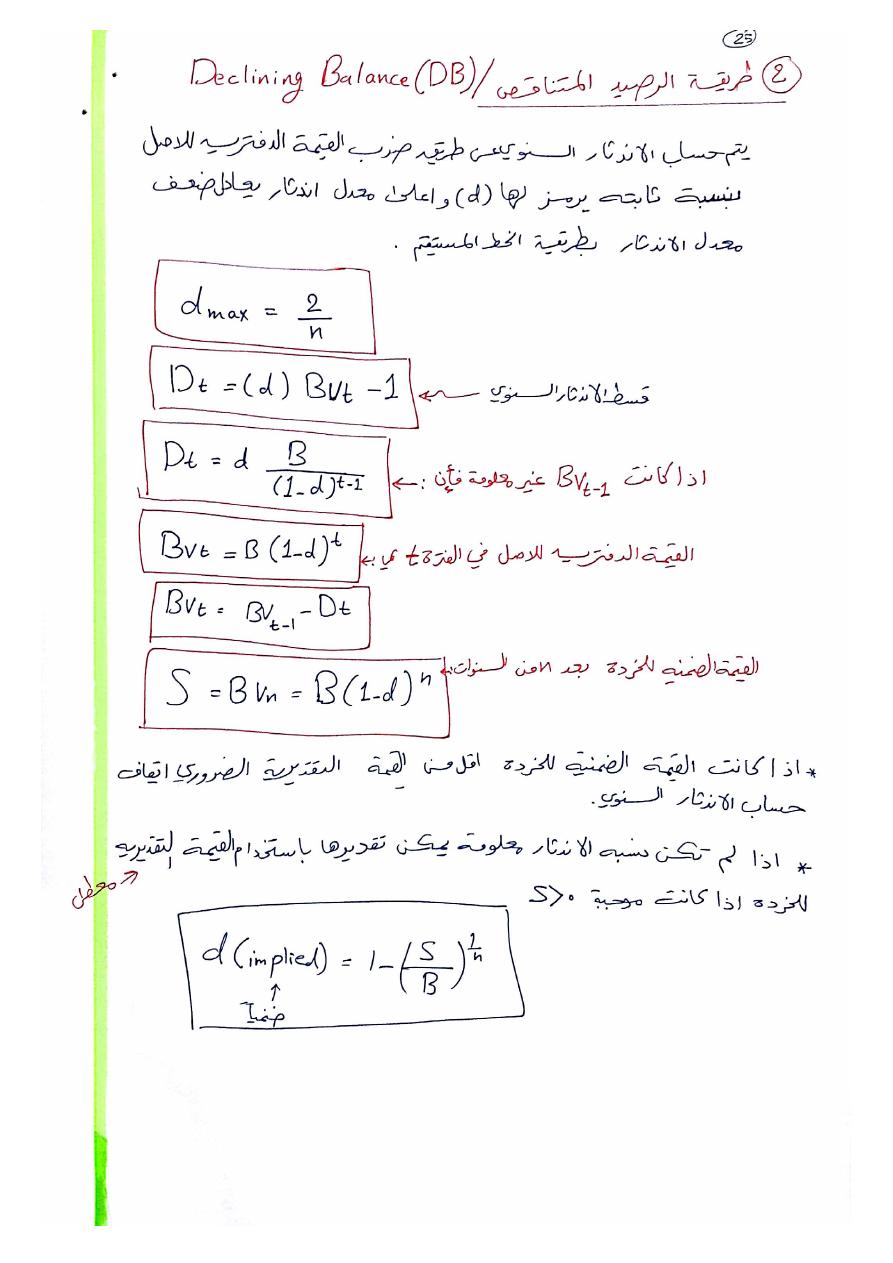 25
② طريقة الرصيد المتناقص / Declining Balance (DB)
يتم حساب الاندثار السنوي عن طريق ضرب القيمة الدفتريه للاصل
بنسبة ثابته يرمز لها (d) و اعلى معدل اندثار يعادل ضعف
معدل الاندثار بطريقة الخط المستقيم .
d max = 2/n
Dt = (d) BVt -1 ← قسط الاندثار السنوي
Dt = d B/(1-d)^t-1 ← اذا كانت BVt-1 غير معلومة فأن :
BVt = B (1-d)^t ← القيمة الدفتريه للاصل في الفترة t هي :
BVt = BVt-1 - Dt
S = BVn = B(1-d)^n ← القيمة الضمنيه للخردة بعد n من السنوات :
* اذا كانت القيمة الضمنية للخردة اقل من القيمة التقديرية الضروري اتقاف
حساب الاندثار السنوي.
* اذا لم تكن نسبه الاندثار معلومة يمكن تقديرها باستخدام القيمة التقديريه
للخردة اذا كانت موجبة S>0
معطى
d (implied) = 1-(S/B)^1/n
↑
ضمنياً